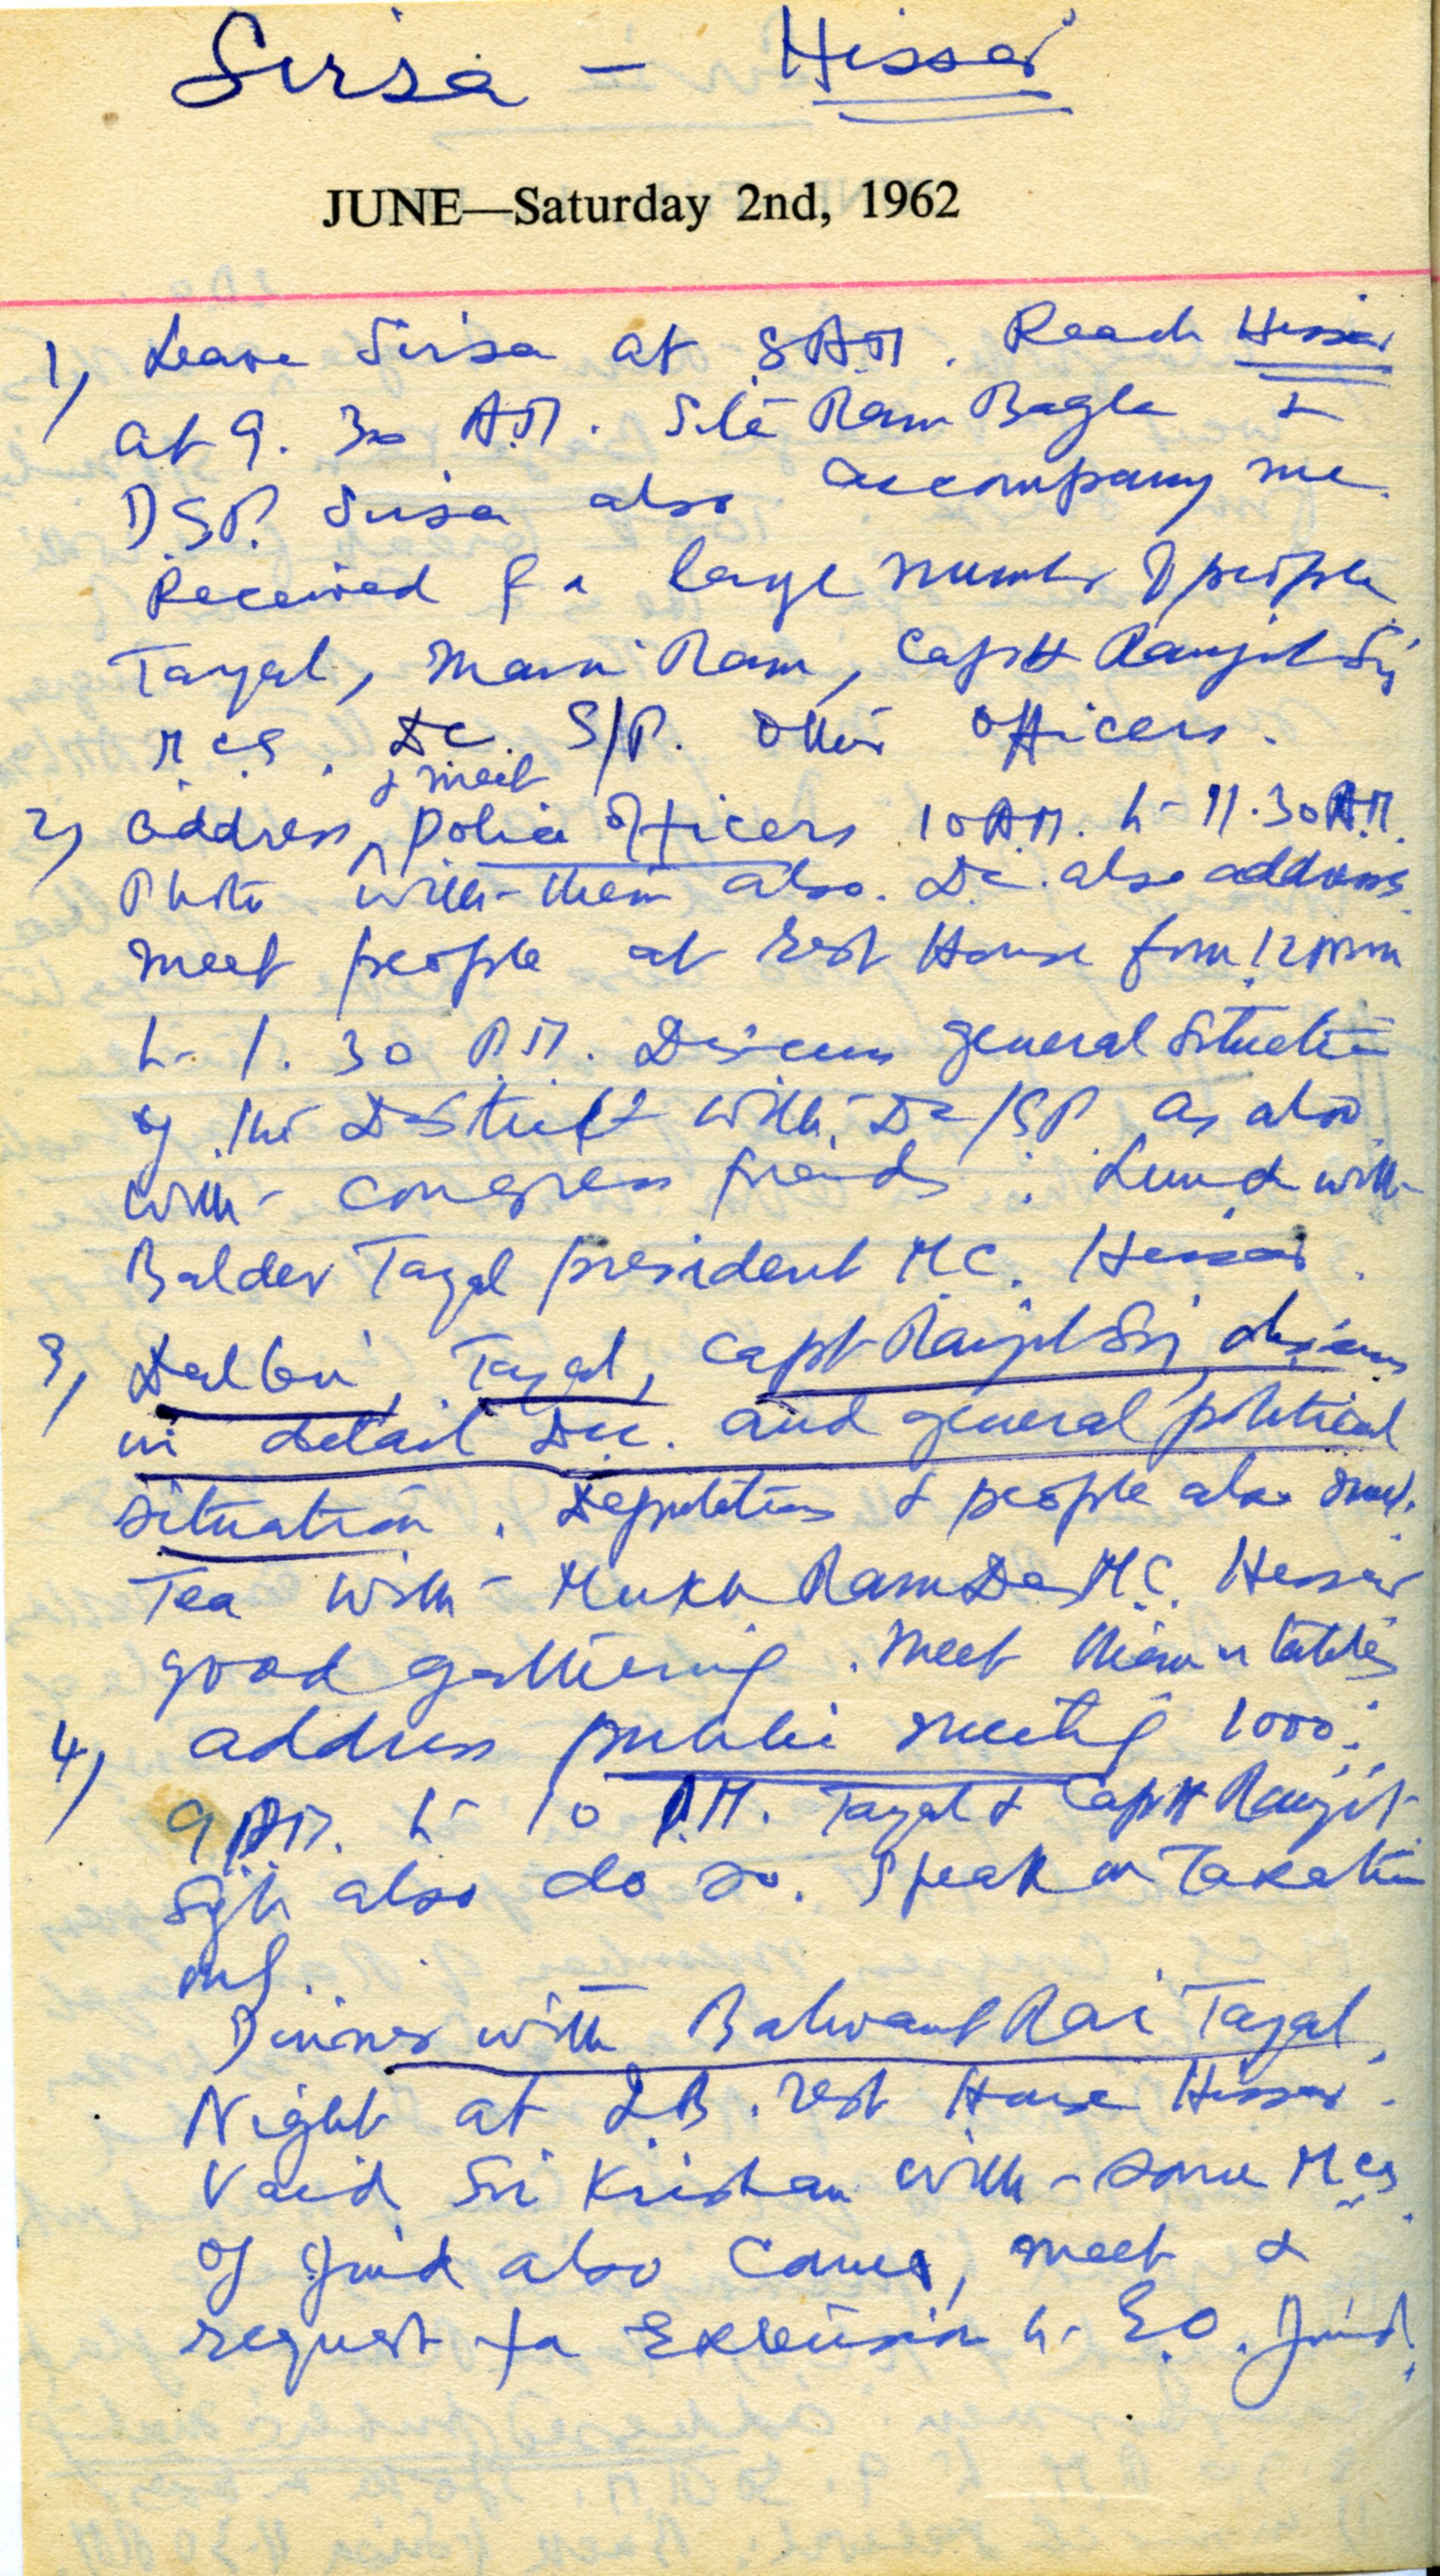 Sirsa - Hissar
JUNE—Saturday 2nd, 1962
1, Leave Sirsa at 8 A.M. Reach Hissar
at 9. 30 A.M. Sita Ram Bagla &
D.S.P. Sirsa also accompany me.
Received by a large number of people
Tayal, Mani Ram, Capt Ranjit Sij
M.C.S, DC. S/P. other officers.
& meet
2, address police officers 10 A.M. to 11.30 A.M.
Photo with them also. DC. also address.
meet people at rest House from 12 noon
to 1. 30 P.M. Discuss general situation
of the District with DC/SP. as also
with congress friends. Lunch with
Baldev Tayal president M.C. Hissar.
3, Dalbir, Tayal, Capt Ranjit Sij discuss
in detail DCC. and general political
situation. Deputations & people also meet.
Tea with Mukh Ram MC. Hissar
good gathering. meet them
4, address public meeting 1000.
9 P.M. to 10 P.M. Tayal & Capt Ranjit
Sgh also do so. Speak on Taxation
only.
Dinner with Balwant Rai Tayal.
Night at rest House Hissar.
Vaid Sri Krishan with some MCs
of Jind also came, meet &
request for Extension to E.O. Jind.